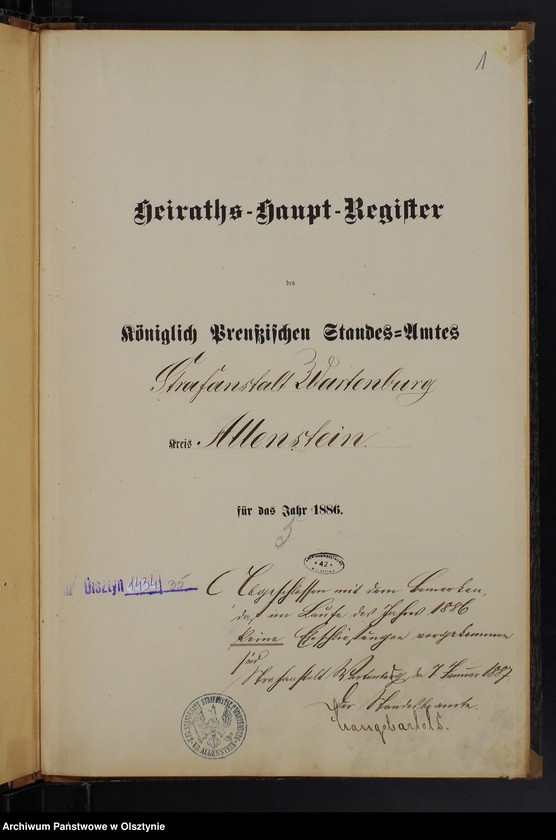 1
Heiraths-Haupt-Register
des
Königlich Preußischen Standes-Amtes
Strafanstalt Wartenburg
Kreis Allenstein.
für das Jahr 1886.
5
42
Olsztyn 1434/35
Abgeschlossen mit dem Bemerken,
daß im Laufe des Jahres 1886
keine Eheschließungen vorgekommen
sind
Strafanstalt Wartenburg, den 7 Januar 1887
Der Standesbeamte.
KR. ALLENSTEIN
Archiwum Państwowe w Olsztynie